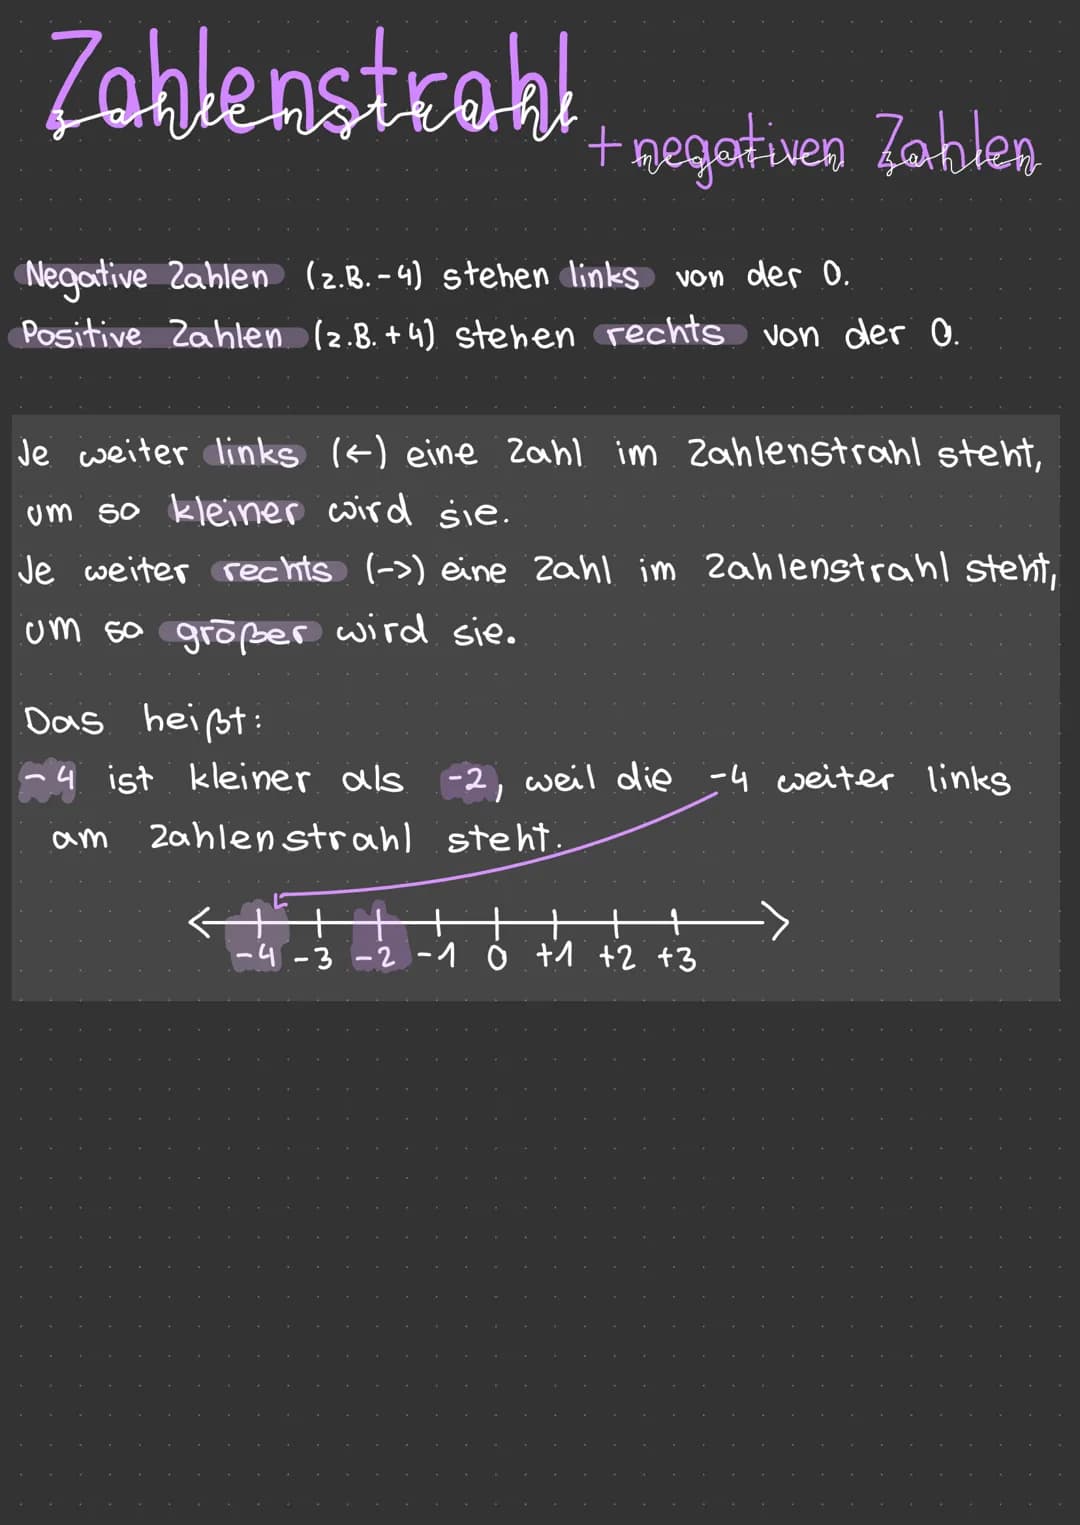 Zahlenstrahl
zahlenstrahl
+ negativen Zahlen
negativen zahlen
Negative Zahlen (z.B. -4) stehen links von der 0.
Positive Zahlen (z.B. +4) stehen rechts von der 0.
Je weiter links (←) eine Zahl im Zahlenstrahl steht,
um so kleiner wird sie.
Je weiter rechts (->) eine Zahl im Zahlenstrahl steht,
um so größer wird sie.
Das heißt:
-4 ist kleiner als -2, weil die -4 weiter links
am Zahlenstrahl steht.
-4 -3 -2 -1 0 +1 +2 +3